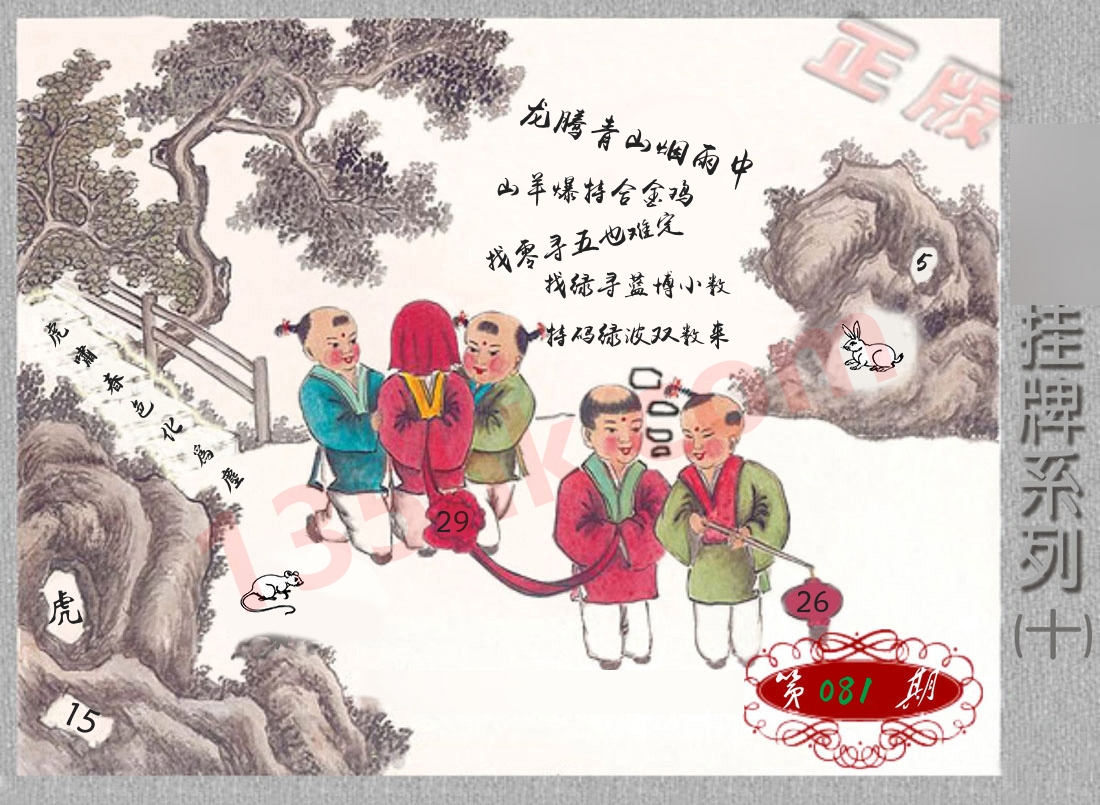 正版
龙腾青山烟雨中
山羊爆特合金鸡
找零寻五也难定
找绿寻蓝博小数
特码绿波双数来
虎啸春色化为尘
5
挂牌系列(十)
29
26
虎
15
第081期